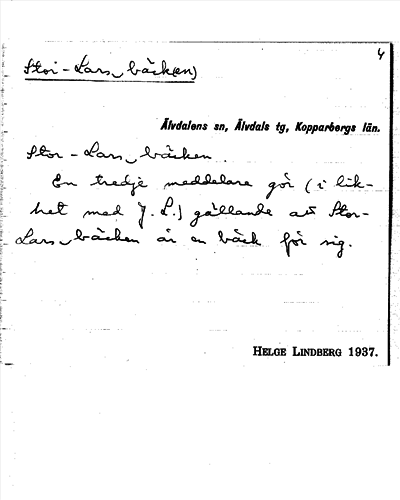 4
Stor-Lars bäck(en)
Älvdalens sn, Älvdals tg, Kopparbergs län.
Stor-Lars bäcken.
En tredje meddelare gör (i lik-
het med J. L.) gällande att Stor-
Lars bäcken är en bäck för sig.
HELGE LINDBERG 1937.